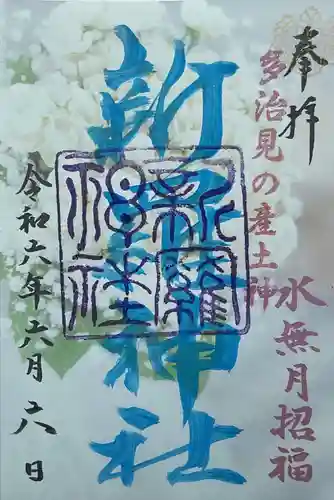 奉拝
多治見の産土神
水無月招福
新羅神社
新羅
神社
令和六年六月六日